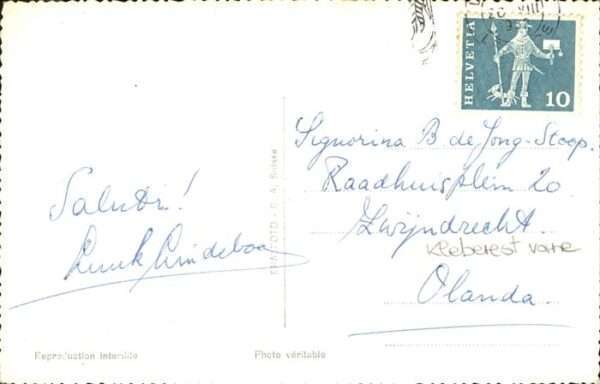 HELVETIA
10
Signorina B de Jong-Stoop.
Raadhuisplein 20
Zwijndrecht.
Kleberest vorne
Olanda.
Saluti!
Reproduction interdite
Photo véritable